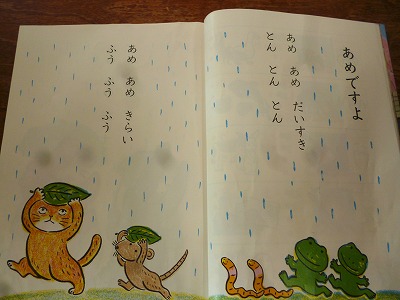 あめですよ
あめ あめ だいすき
とん とん とん
あめ あめ きらい
ふう ふう ふう